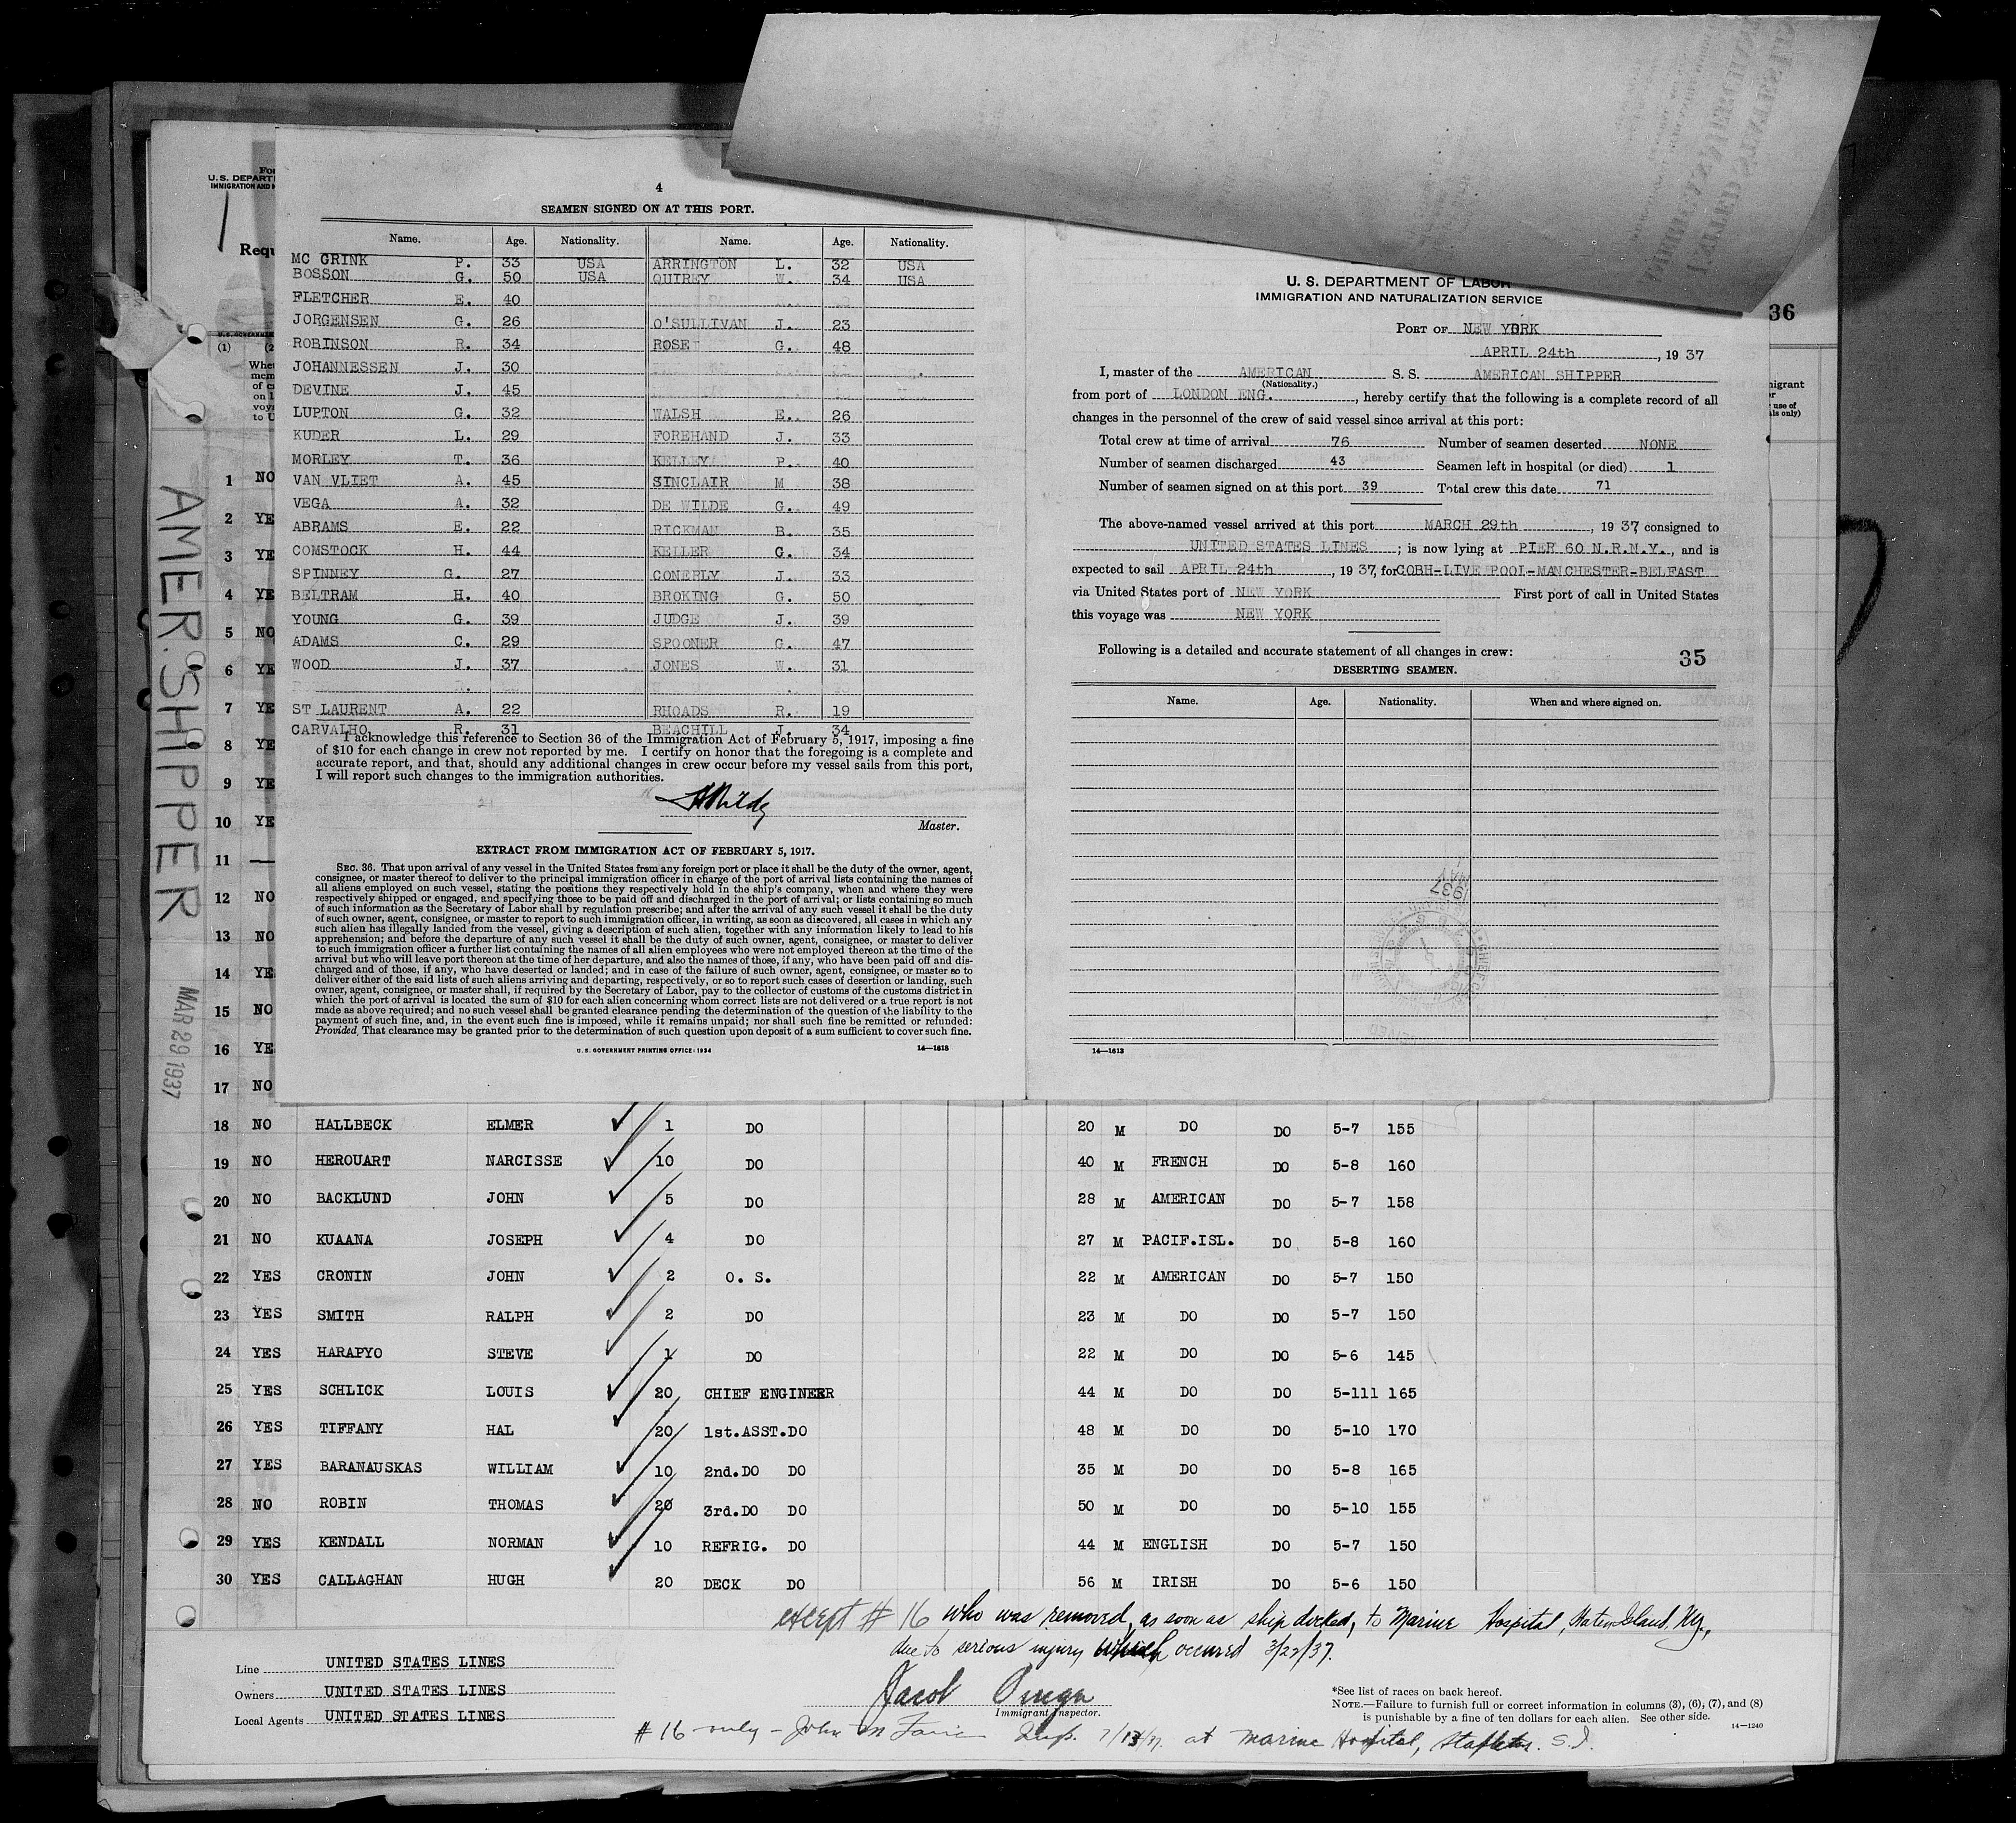 For
U. S. DEPART
IMMIGRATION AND N
Requ
(1) (2
Whet
mem
of c
on l
voya
to U
AMER. SHIPPER
MAR 29 1937
1 NO
2 YE
3 YE
4 YE
5 NO
6 YE
7 YE
8 YE
9 YE
10 YE
11 —
12 NO
13 NO
14 YE
15 NO
16 YE
17 NO
4
SEAMEN SIGNED ON AT THIS PORT.
Name. Age. Nationality. Name. Age. Nationality.
MC GRINK P. 33 USA ARRINGTON L. 32 USA
BOSSON G. 50 USA QUIREY W. 34 USA
FLETCHER E. 40
JORGENSEN G. 26 O'SULLIVAN J. 23
ROBINSON R. 34 ROSE G. 48
JOHANNESSEN J. 30
DEVINE J. 45
LUPTON G. 32 WALSH E. 26
KUDER L. 29 FOREHAND J. 33
MORLEY T. 36 KELLEY P. 40
VAN VLIET A. 45 SINCLAIR M 38
VEGA A. 32 DE WILDE G. 49
ABRAMS E. 22 RICKMAN B. 35
COMSTOCK H. 44 KELLER G. 34
SPINNEY G. 27 CONERLY J. 33
BELTRAM H. 40 BROKING G. 50
YOUNG G. 39 JUDGE J. 39
ADAMS C. 29 SPOONER G. 47
WOOD J. 37 JONES W. 31
ST LAURENT A. 22 RHOADS R. 19
CARVALHO R. 31 BEACHILL J. 34
I acknowledge this reference to Section 36 of the Immigration Act of February 5, 1917, imposing a fine
of $10 for each change in crew not reported by me. I certify on honor that the foregoing is a complete and
accurate report, and that, should any additional changes in crew occur before my vessel sails from this port,
I will report such changes to the immigration authorities.
Master.
EXTRACT FROM IMMIGRATION ACT OF FEBRUARY 5, 1917.
SEC. 36. That upon arrival of any vessel in the United States from any foreign port or place it shall be the duty of the owner, agent,
consignee, or master thereof to deliver to the principal immigration officer in charge of the port of arrival lists containing the names of
all aliens employed on such vessel, stating the positions they respectively hold in the ship's company, when and where they were
respectively shipped or engaged, and specifying those to be paid off and discharged in the port of arrival; or lists containing so much
of such information as the Secretary of Labor shall by regulation prescribe; and after the arrival of any such vessel it shall be the duty
of such owner, agent, consignee, or master to report to such immigration officer, in writing, as soon as discovered, all cases in which any
such alien has illegally landed from the vessel, giving a description of such alien, together with any information likely to lead to his
apprehension; and before the departure of any such vessel it shall be the duty of such owner, agent, consignee, or master to deliver
to such immigration officer a further list containing the names of all alien employees who were not employed thereon at the time of the
arrival but who will leave port thereon at the time of her departure, and also the names of those, if any, who have been paid off and dis-
charged and of those, if any, who have deserted or landed; and in case of the failure of such owner, agent, consignee, or master so to
deliver either of the said lists of such aliens arriving and departing, respectively, or so to report such cases of desertion or landing, such
owner, agent, consignee, or master shall, if required by the Secretary of Labor, pay to the collector of customs of the customs district in
which the port of arrival is located the sum of $10 for each alien concerning whom correct lists are not delivered or a true report is not
made as above required; and no such vessel shall be granted clearance pending the determination of the question of the liability to the
payment of such fine, and, in the event such fine is imposed, while it remains unpaid; nor shall such fine be remitted or refunded:
Provided, That clearance may be granted prior to the determination of such question upon deposit of a sum sufficient to cover such fine.
U. S. GOVERNMENT PRINTING OFFICE: 1934 14—1613
U. S. DEPARTMENT OF LABOR
IMMIGRATION AND NATURALIZATION SERVICE
PORT OF NEW YORK
APRIL 24th, 1937
I, master of the AMERICAN S. S. AMERICAN SHIPPER
(Nationality.)
from port of LONDON ENG., hereby certify that the following is a complete record of all
changes in the personnel of the crew of said vessel since arrival at this port:
Total crew at time of arrival 76 Number of seamen deserted NONE
Number of seamen discharged 43 Seamen left in hospital (or died) 1
Number of seamen signed on at this port 39 Total crew this date 71
The above-named vessel arrived at this port MARCH 29th, 1937 consigned to
UNITED STATES LINES; is now lying at PIER 60 N.R.N.Y., and is
expected to sail APRIL 24th, 1937, for COBH-LIVE POOL-MANCHESTER-BELFAST
via United States port of NEW YORK First port of call in United States
this voyage was NEW YORK
Following is a detailed and accurate statement of all changes in crew: 35
DESERTING SEAMEN.
Name. Age. Nationality. When and where signed on.
MAY
1937
14—1613
36
migrant
r
use of
als only)
18 NO HALLBECK ELMER 1 DO 20 M DO DO 5-7 155
19 NO HEROUART NARCISSE 10 DO 40 M FRENCH DO 5-8 160
20 NO BACKLUND JOHN 5 DO 28 M AMERICAN DO 5-7 158
21 NO KUAANA JOSEPH 4 DO 27 M PACIF.ISL. DO 5-8 160
22 YES CRONIN JOHN 2 O. S. 22 M AMERICAN DO 5-7 150
23 YES SMITH RALPH 2 DO 23 M DO DO 5-7 150
24 YES HARAPYO STEVE 1 DO 22 M DO DO 5-6 145
25 YES SCHLICK LOUIS 20 CHIEF ENGINEER 44 M DO DO 5-111 165
26 YES TIFFANY HAL 20 1st.ASST.DO 48 M DO DO 5-10 170
27 YES BARANAUSKAS WILLIAM 10 2nd.DO DO 35 M DO DO 5-8 165
28 NO ROBIN THOMAS 20 3rd.DO DO 50 M DO DO 5-10 155
29 YES KENDALL NORMAN 10 REFRIG. DO 44 M ENGLISH DO 5-7 150
30 YES CALLAGHAN HUGH 20 DECK DO 56 M IRISH DO 5-6 150
except # 16 who was removed, as soon as ship docked, to Marine Hospital, Staten Island, N.Y.,
due to serious injury which occured 3/22/37.
Line UNITED STATES LINES
Owners UNITED STATES LINES
Local Agents UNITED STATES LINES
Jacob
Immigrant Inspector.
*See list of races on back hereof.
NOTE.—Failure to furnish full or correct information in columns (3), (6), (7), and (8)
is punishable by a fine of ten dollars for each alien. See other side.
14—1240
# 16 only - John at Marine Hospital, Stapleton. S.I.